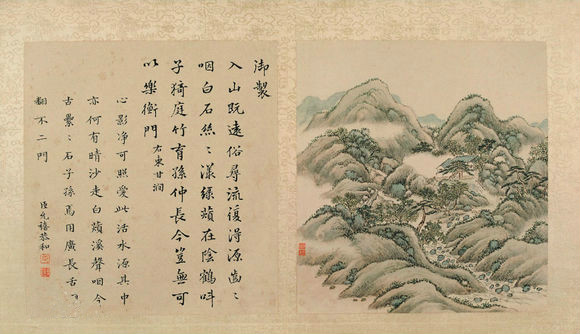 御製
入山既遠俗尋流復得源齒〻
咽白石絲〻漾綠蘋在陰鶴叫
子猗庭竹育孫仲長今豈無可
以樂衡門 右東甘澗
心影净可照愛此活水源其中
亦何有晴沙走白蘋溪聲咽今
古纍〻石子孫焉用廣長舌
翻不二門
臣允禧恭和